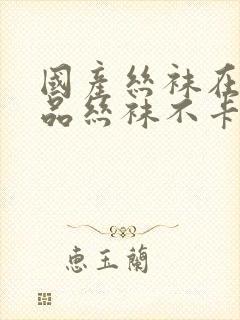 國產絲袜在
品絲袜不卡
惠玉蘭